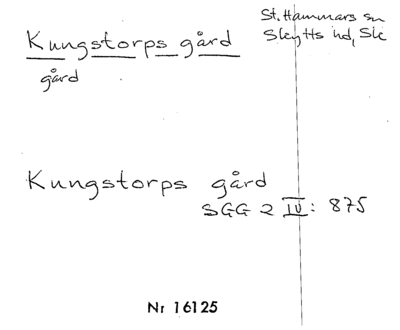 Kungstorps gård
gård
St. Hammars sn
Skytts hd, Sk
Kungstorps gård
SGG 2 IV: 875
Nr 16125